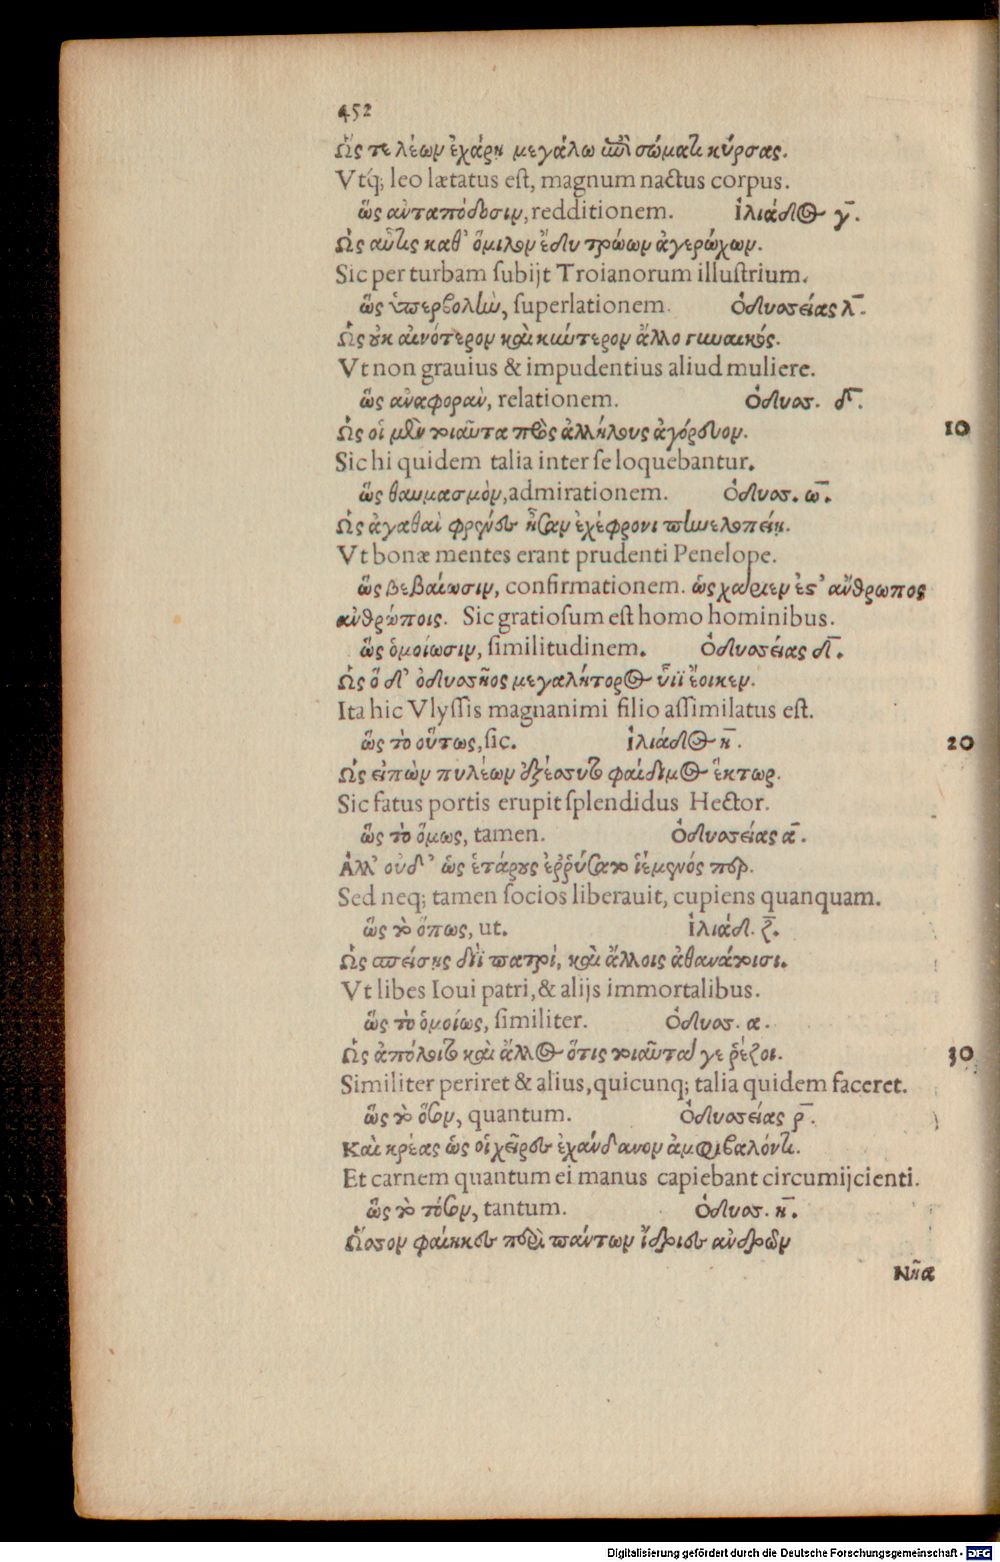 452
Ὥς τε λέων ἐχάρη μεγάλῳ ἐπὶ σώματι κύρσας.
Vtq́; leo lætatus est, magnum nactus corpus.
ὣς ἀνταπόδοσιν, redditionem. ἰλιάδος γ̄.
Ὣς αὖτις καθ' ὅμιλον ἔδυ τρώων ἀγερώχων.
Sic per turbam subijt Troianorum illustrium.
ὣς ὑπερβολὴν, superlationem. ὀδυσσείας λ̄.
Ὡς οὐκ αἰνότερον καὶ κύντερον ἄλλο γυναικός.
Vt non grauius & impudentius aliud muliere.
ὣς ἀναφορὰν, relationem. ὀδυσ. δ̄.
Ὣς οἱ μὲν τοιαῦτα πρὸς ἀλλήλους ἀγόρευον. 10
Sic hi quidem talia inter se loquebantur.
ὣς θαυμασμὸν, admirationem. ὀδυσ. ω̄.
Ὡς ἀγαθαὶ φρένες ἦσαν ἐχέφρονι πηνελοπείῃ.
Vt bonæ mentes erant prudenti Penelope.
ὣς βεβαίωσιν, confirmationem. ὡς χαρίεν ἐσ' ἄνθρωπος
ἀνθρώποις. Sic gratiosum est homo hominibus.
ὣς ὁμοίωσιν, similitudinem. ὀδυσσείας δ̄.
Ὡς ὅ δ' ὀδυσσῆος μεγαλήτορος υἷϊ ἔοικεν.
Ita hic Vlyssis magnanimi filio assimilatus est.
ὣς τὸ οὕτως, sic. ἰλιάδος η̄. 20
Ὣς εἰπὼν πυλέων ἐξέσσυτο φαίδιμος ἕκτωρ.
Sic fatus portis erupit splendidus Hector.
ὣς τὸ ὅμως, tamen. ὀδυσσείας ᾱ.
Ἀλλ' οὐδ' ὣς ἑτάρους ἐῤῥύσατο ἱέμενός περ.
Sed neq; tamen socios liberauit, cupiens quanquam.
ὣς τὸ ὅπως, ut. ἰλιάδ. ζ̄.
Ὡς σπείσῃς διῒ πατρὶ, καὶ ἄλλοις ἀθανάτοισι.
Vt libes Ioui patri, & alijs immortalibus.
ὣς τὸ ὁμοίως, similiter. ὀδυσ. α.
Ὣς ἀπόλοιτο καὶ ἄλλος ὅτις τοιαῦτά γε ῥέζοι. 30
Similiter periret & alius, quicunq; talia quidem faceret.
ὣς τὸ ὅσον, quantum. ὀδυσσείας ρ̄.
Καὶ κρέας ὥς οἱ χεῖρες ἐχάνδανον ἀμφιβαλόντι.
Et carnem quantum ei manus capiebant circumijcienti.
ὣς τὸ τόσον, tantum. ὀδυσ. η̄.
Ὅσσον φαίηκες περὶ πάντων ἴδριες ἀνδρῶν
Νῆα
Digitalisierung gefördert durch die Deutsche Forschungsgemeinschaft - DFG